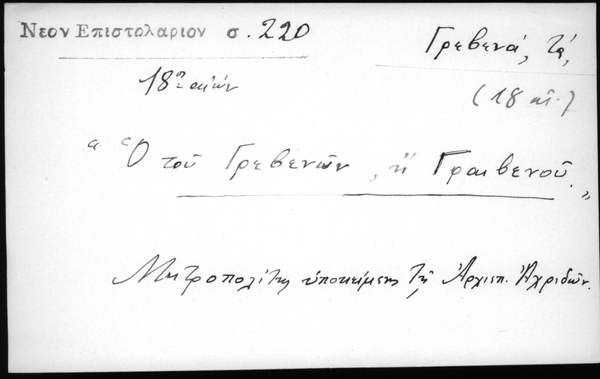 Νεον Επιστολαριον σ. 220
Γρεβενά, τά,
18ος αἰών
(18 αἰ.)
"Ὁ τοῦ Γρεβενῶν, ἤ Γραιβενοῦ."
Μητροπολίτης ὑποκείμενος τῇ Ἀρχιεπ. Ἀχριδῶν.